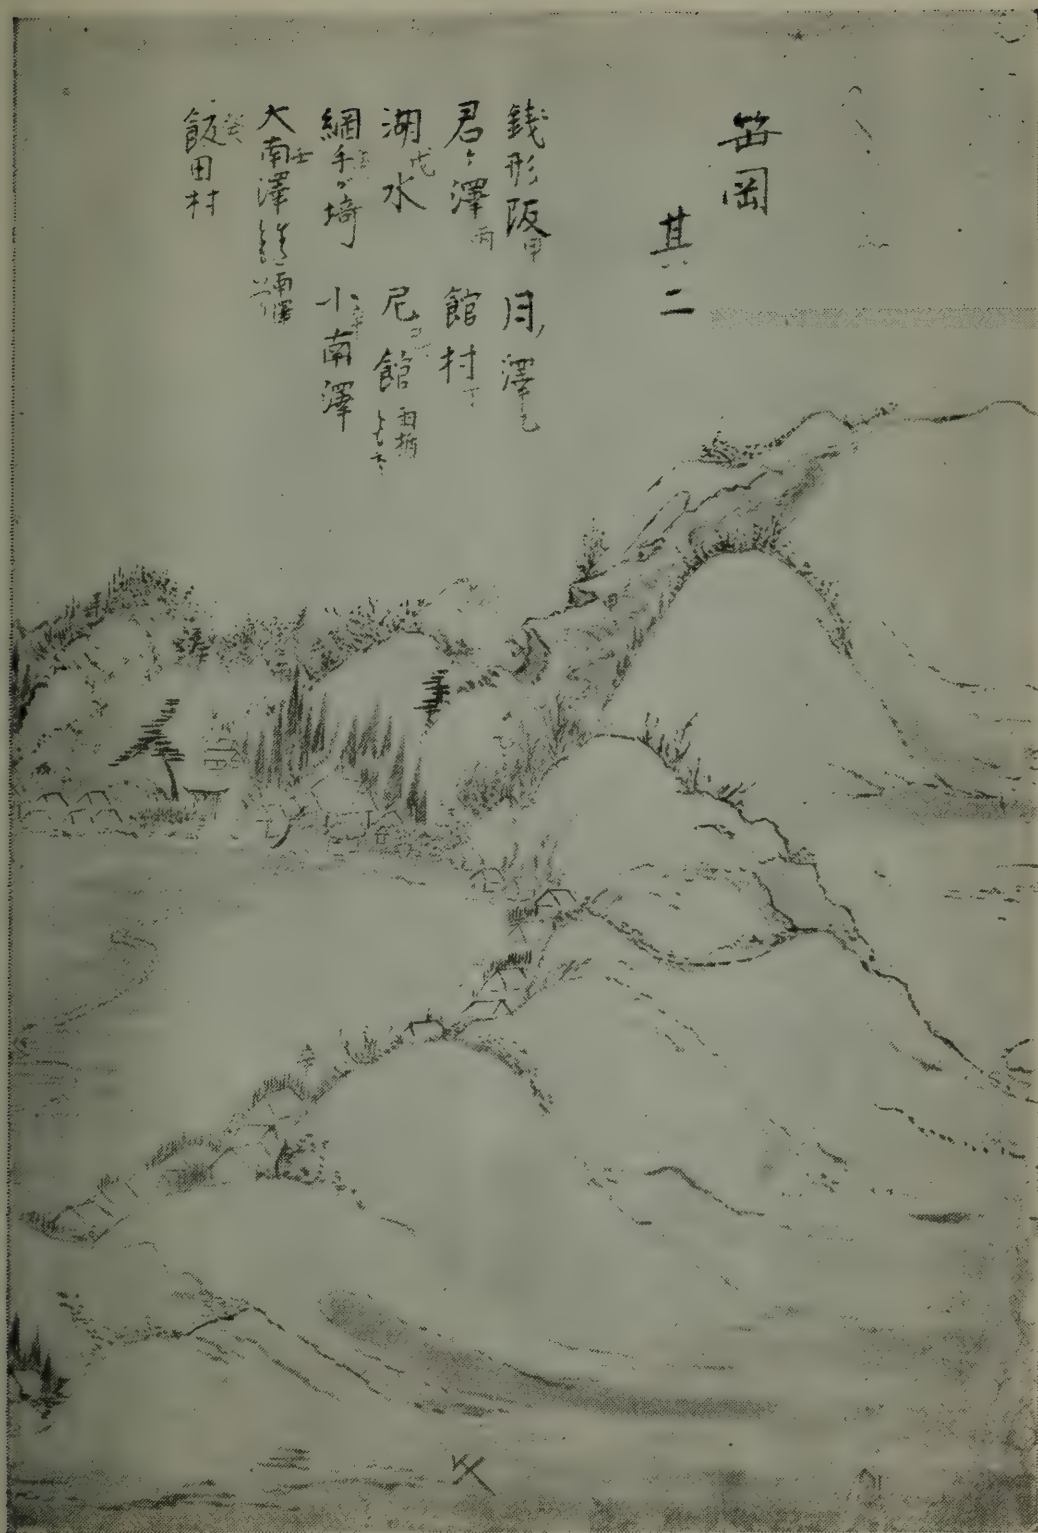 笹岡
其二
銭形阪 甲 月ノ澤 乙
君ヶ澤 丙 館村 丁
湖水 戊 尼館
網手ヶ埼 小南澤
大南澤 壬 南澤
飯田村 癸